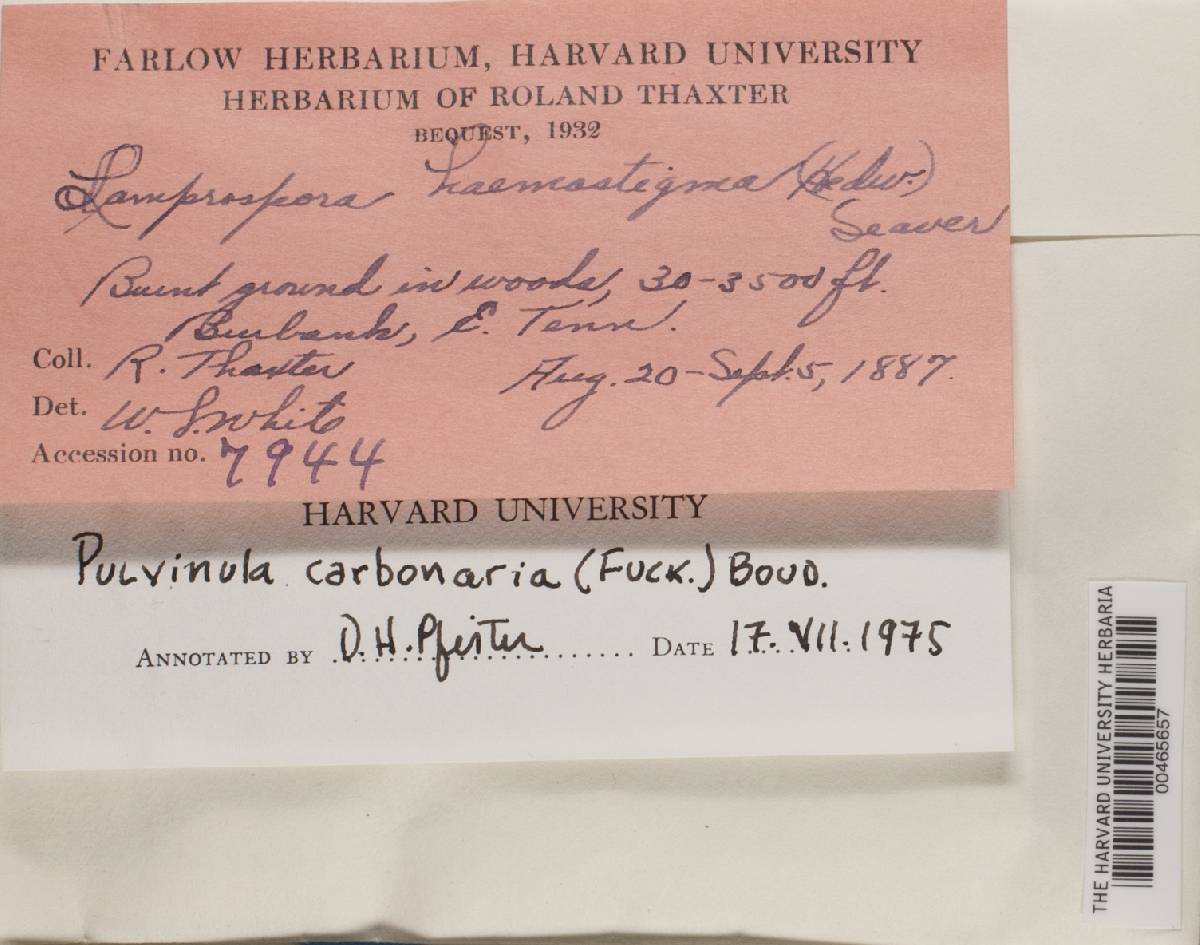 FARLOW HERBARIUM, HARVARD UNIVERSITY
HERBARIUM OF ROLAND THAXTER
BEQUEST, 1932
Lamprospora haemastigma (Hedw.)
Seaver
Burnt ground in woods, 30-3500 ft.
Burbank, E. Tenn.
Coll. R. Thaxter Aug. 20-Sept. 5, 1887.
Det. W. L. White
Accession no. 7944
HARVARD UNIVERSITY
Pulvinula carbonaria (Fuck.) Boud.
ANNOTATED BY D. H. Pfister DATE 17. VII. 1975
THE HARVARD UNIVERSITY HERBARIA
00465657